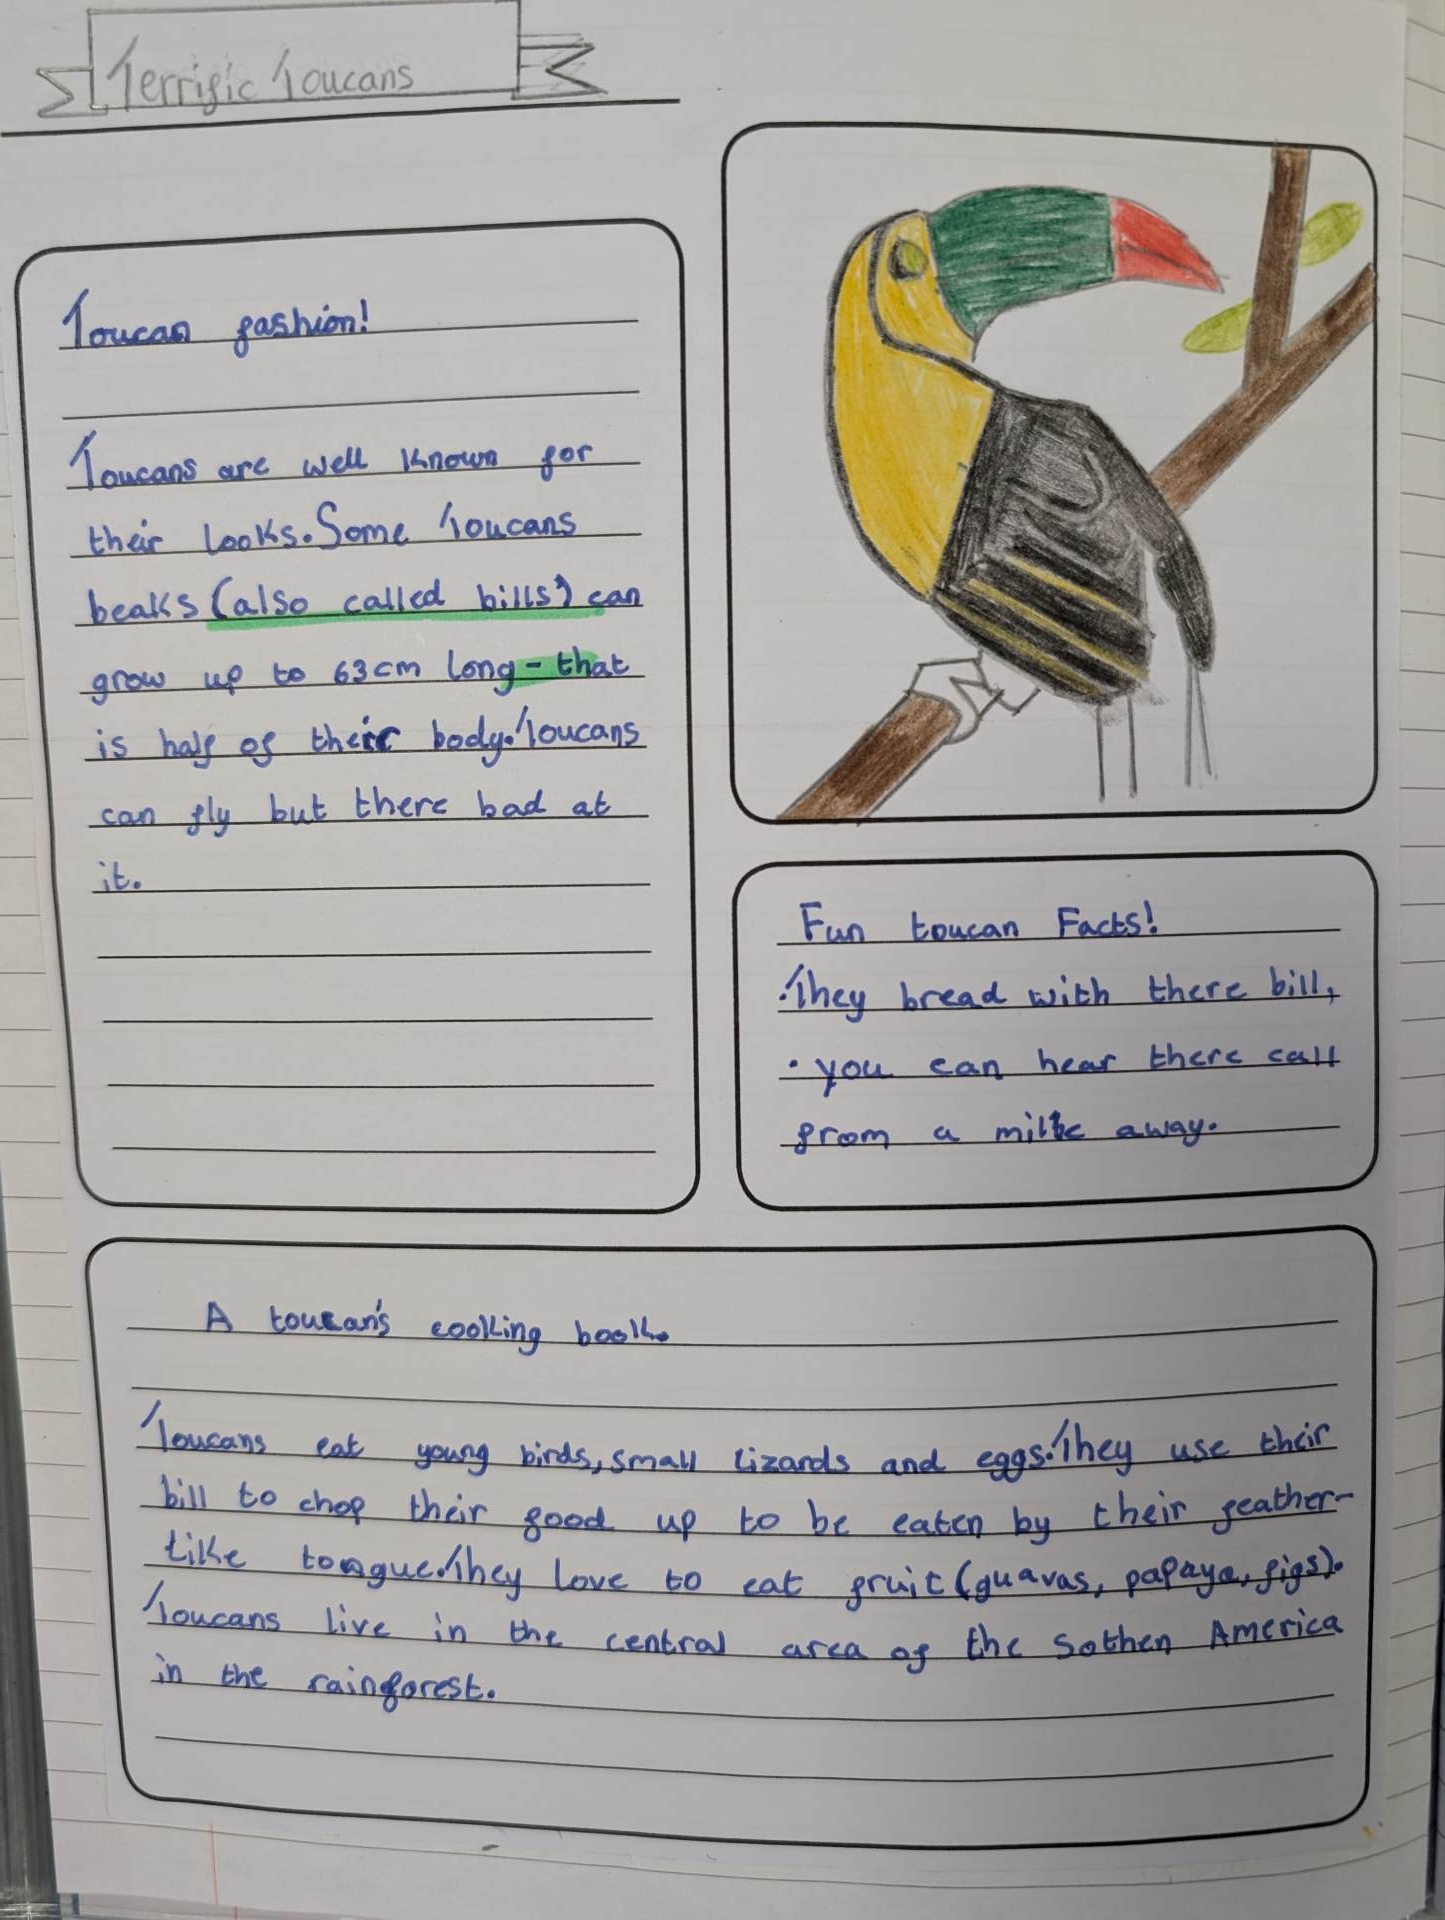 Terrific Toucans
Toucan fashion!
Toucans are well known for
their looks. Some Toucans
beaks (also called bills) can
grow up to 63cm long - that
is half of their body. Toucans
can fly but there bad at
it.
Fun toucan Facts!
·They bread with there bill,
· you can hear there call
from a mile away.
A toucan's cooking book.
Toucans eat young birds, small lizards and eggs. They use their
bill to chop their food up to be eaten by their feather-
like tongue. They love to eat fruit (guavas, papaya, figs).
Toucans live in the central area of the Sothen America
in the rainforest.